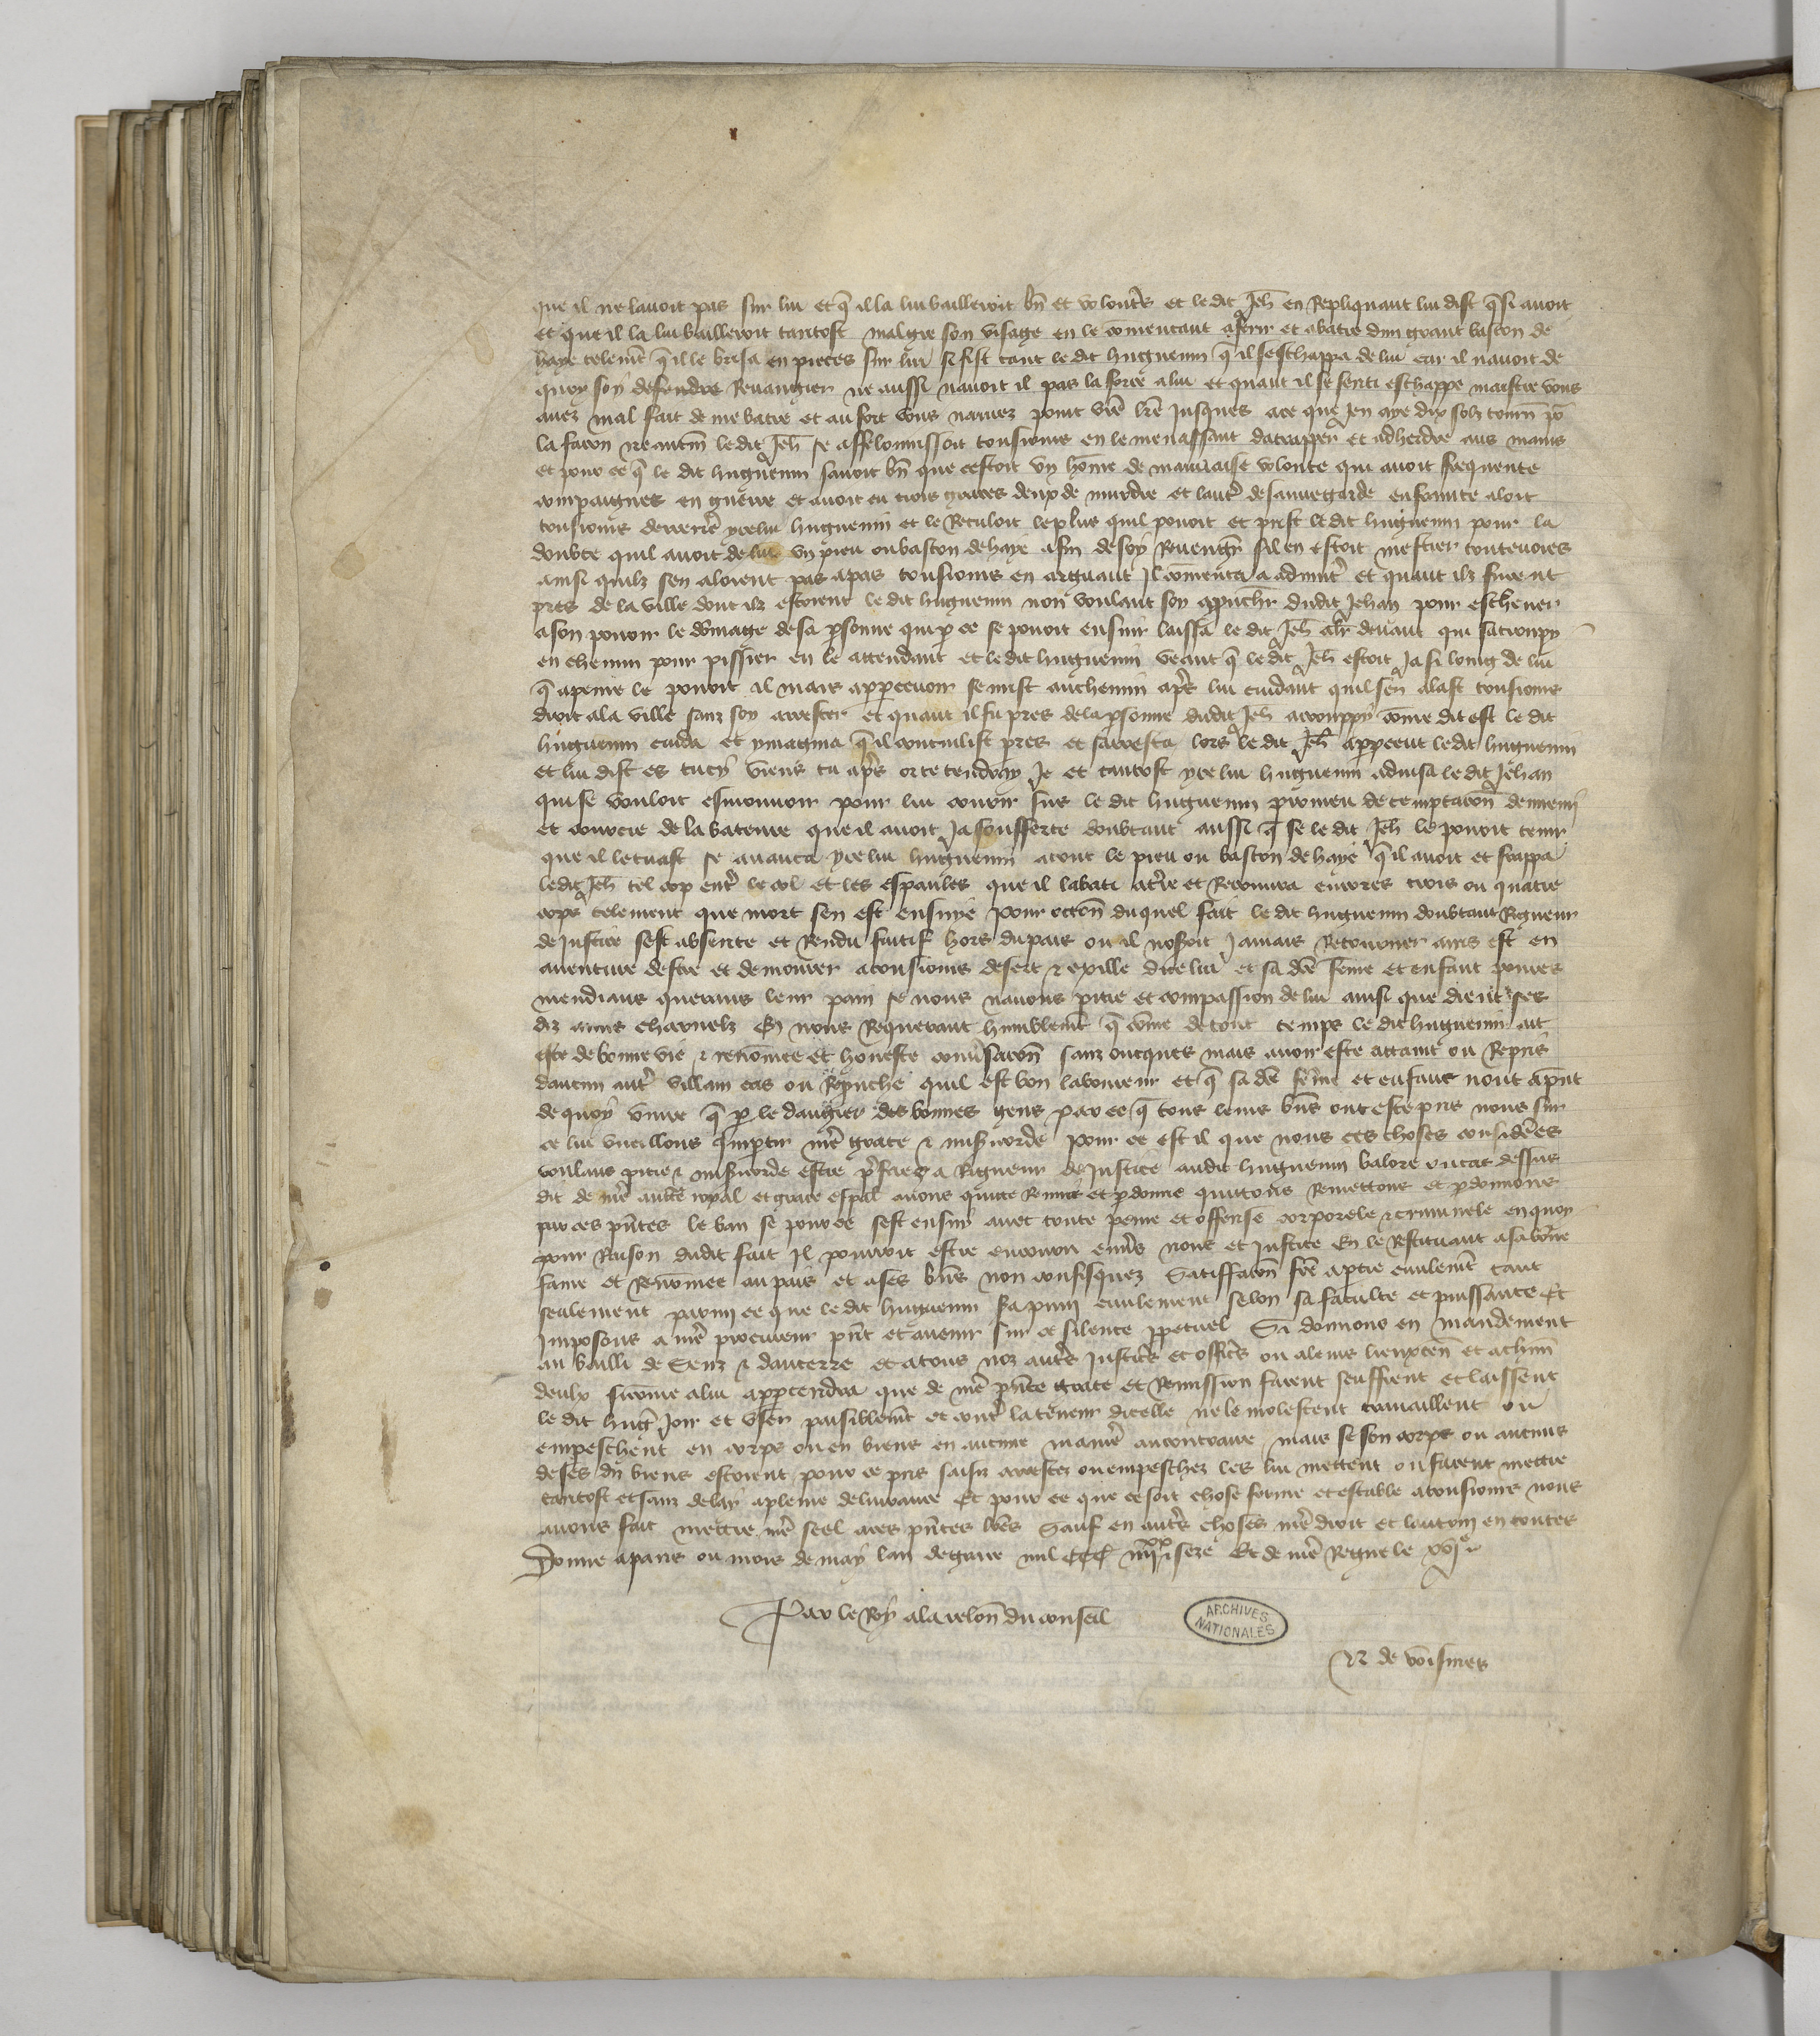 que il ne lavoit pas sur lui et q̃ il la lui bailleroit bñ et volontr̃s et ledit Jeh̃ en Repliquant lui dist q̃ si avoit
et que il la lui bailleroit tantost malgre son visage en le com̃encant a ferir et abatre dun grant baston de
haye telem̃t q̃ il le brisa en pieces sur lui si fist tant le dit huguenin q̃ il seschappa de lui car il navoit de
quoy soy defendre Revangier ne aussi navoit il pas la force a lui et quant il se senti eschappe maistre vous
avez mal fait de me batre et au fort vous naurez point vr̃e lr̃e jusques a ce que jen aye dix solz tourñ po
la facon neantm̃ ledit Jeh̃ se affelonnissoit tousiours en le menassant datrapper et adherdre aus mains
et pour ce q̃ le dit huguenin savoit bñ que cestoit un hom̃e de mauvaise volonte qui avoit frequente
compaignes en guerre et avoit eu trois graces deux de murdre et lautr̃ de sauvegarde enfrainte aloit
tousiours derrier̃ ycelui huguenin et le Reculoit le plus quil povoit et prist ledit huguenin pour la
doubte quil avoit de lui un pieu ou baston de haye afin de soy Revengr̃ sil en estoit mestier toutevoies
ainsi quilz sen aloient pas a pas tousiours en arguant Il com̃enca a adnuitr̃ et quant ilz furent
pres de la ville dont ilz estoient ledit huguenin non voulant soy apuchr̃ dudit Jehan pour eschever
a son povoir le dom̃age de sa ꝑsonne qui ꝑ ce se povoit ensuir laissa le dit Jeh̃ alr̃ devant qui sacroupy
en chemin pour pissier en le attendant et ledit huguenin veant q̃ le dit Jeh̃ estoit ja si loing de lui
q̃ a peine le povoit il mais apparcevoir se mist au chemin apr̃s lui cuidant quil sen alast tousiours
droit a la ville sanz soy arrester et quant il fu pres de la ꝑsonne dudit Jeh̃ acrouppy com̃e dit est le dit
huguenin cuida et ymagina q̃ il sarresta lors le dit Jeh̃ appceut ledit huguenin
et lui dist es tu cy viens tu apr̃s or te tendray je et tantost ycelui huguenin advisa ledit Jehan
qui se vouloit esmouvoir pour lui courir sus le dit huguenin promeu de temptacoñ dennemi
et courcie de la bateure que il avoit ja soufferte doubtant aussi q̃ se le dit Jeh̃ le povoit tenir
que il le tuast se avanca ycelui huguenin atout le pieu ou baston de haye q̃ il avoit et frappa
ledit Jeh̃ tel cop entr̃ le col et les espaules que il labati a tr̃re et Recouvra encores trois ou quatre
cops telement que mort sen est ensuye Pour occoñ duquel fait le dit huguenin doubtant Rigueur
de justice sest absente et Rendu fuitif hors du pais ou il noseroit jamais Retourner ains est en
aventure destre et demourer a tousiours desert & exille dicelui et sa dc̃e fem̃e et enfant povres
mendians querans leur pain se nous navons pitie et compassion de lui ainsi que dient ses
diz amis charnelz En nous Requerant humblem̃t q̃ com̃e de tout temps le dit huguenin ait
este de bonne vie & renom̃ee et honeste conversacoñ sanz oncques mais avoir este attaint ou Repris
daucun autr̃ villain cas ou Reprouche quil est bon laboureur et q̃ sa dc̃e fem̃e et enfans nont apñt
de quoy vivre q̃ ꝑ le dangier des bonnes gens par ce q̃ tous leurs bñs ont este pris nous sur
ce lui vueillons impartir nr̃e grace & misericorde Pour ce est il que nous ces choses considerees
voulans pitie & misericorde estre preferez a Rigueur de justice audit huguenin ou cas dessus
dit de nr̃e auctc̃ royal et grace espal̃ avons quicte Remis et ꝑdonne quictons Remettons et ꝑdonnons
par ces pñtes le ban se pour ce sest ensui avec toute peine et offense corporele & criminele en quoy
pour Raison dudit fait Il pourroit estre encouru envr̃s nous et justice En le Restituant a sa bonne
fame et Renom̃ee au pais et a ses bñs non confisquez Satiffacoñ fc̃e a ptie civilem̃t tant
seulement parmi ce que ledit huguenin sa puni civilement selon sa faculte et puissance Et
Imposons a nr̃e procureur pñt et avenir sur ce silence ꝑpetuel Si donnons en mandement
au bailli de Senz & daucerre et a tous noz autr̃s justicr̃s et officr̃s ou a leurs lieuxteñ et a chm̃
deulx si com̃e a lui appartendra que de nr̃e pñte grace et Remission facent seuffrent et laissent
le dit hug̃ joir et user paisiblem̃t et contr̃ la teneur dicelle ne le molestent travaillent ou
empeschent en corps ou en biens en aucune manier̃ au contraire mais se son corps ou aucuns
de ses dis biens estoient pour ce pris saisiz arrestez ou empeschez les lui mettent ou facent mettre
tantost et sanz delay a pleine delivrance Et pour ce que ce soit chose ferme et estable a tousiours nous
avons fait mettre nr̃e seel a ces pñtes lr̃es Sauf en autr̃s choses nr̃e droit et lautruy en toutes
Donne a paris ou mois de may lan de grace mil ccc iiiixx & seze Et de nr̃e Regne le xvie
Par le Roy a la relõn du conseil
ARCHIVES NATIONALES
N de voisines